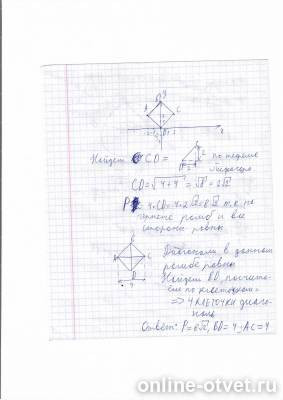 y
A
C
x
Найдем CD =
по теореме
Пифагора
CD=√4+4 = √8 = 2√2
P = 4·CD = 4·2√2 = 8√2 т.к. по
ромб и все
стороны равны
Диагонали в данном
ромбе равны
Найдем BD,
по клеточкам
=> 4 клеточки диаго-
наль
Ответ: P=8√2, BD = 4, AC = 4
online-otvet.ru